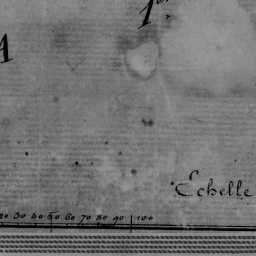 1er
A
Echelle
20 30 40 50 60 70 80 90 100